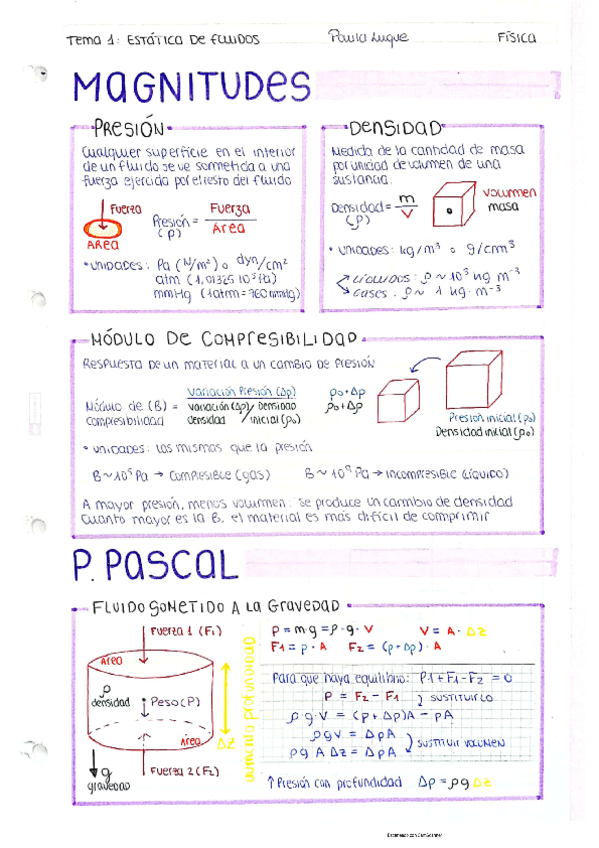 Tema 1: ESTÁTICA DE FLUIDOS Paula Luque FÍSICA
MAGNITUDES
PRESIÓN
Cualquier superficie en el interior
de un fluido se ve sometida a una
fuerza ejercida por el resto del fluido
Fuerza
Área
Presión = Fuerza / Área
(P)
• Unidades: Pa (N/m²) o dyn/cm²
atm (1,01325 10⁵ Pa)
mmHg (1atm = 760 mmHg)
DENSIDAD
Medida de la cantidad de masa
por unidad de volumen de una
sustancia.
Densidad = m / V
(ρ)
volumen
masa
• Unidades: kg/m³ o g/cm³
Líquidos: ρ ~ 10³ kg m⁻³
Gases: ρ ~ 1 kg · m⁻³
MÓDULO DE COMPRESIBILIDAD
Respuesta de un material a un cambio de presión
Módulo de (B) = Variación Presión (Δp)
compresibilidad variación (Δρ) densidad / densidad inicial (ρ₀)
p₀+Δp
ρ₀+Δρ
Presión inicial (p₀)
Densidad inicial (ρ₀)
• Unidades: las mismas que la presión
B ~ 10⁵ Pa → Compresible (gas) B ~ 10⁹ Pa → incompresible (líquido)
A mayor presión, menos volumen: se produce un cambio de densidad
Cuanto mayor es la B, el material es más difícil de comprimir
P. PASCAL
FLUIDO SOMETIDO A LA GRAVEDAD
Fuerza 1 (F₁)
Área
ρ
densidad
Peso (P)
Área
Δz
g
gravedad
Fuerza 2 (F₂)
aumento profundidad
P = m·g = ρ·g·V V = A·Δz
F₁ = p·A F₂ = (p+Δp)·A
Para que haya equilibrio: P+F₁-F₂ = 0
P = F₂ - F₁ sustituirlo
ρ g·V = (p+Δp)A - pA
ρgV = ΔpA
sustituir volumen
ρg A Δz = ΔpA
↑ Presión con profundidad Δp = ρg Δz
Escaneado con CamScanner